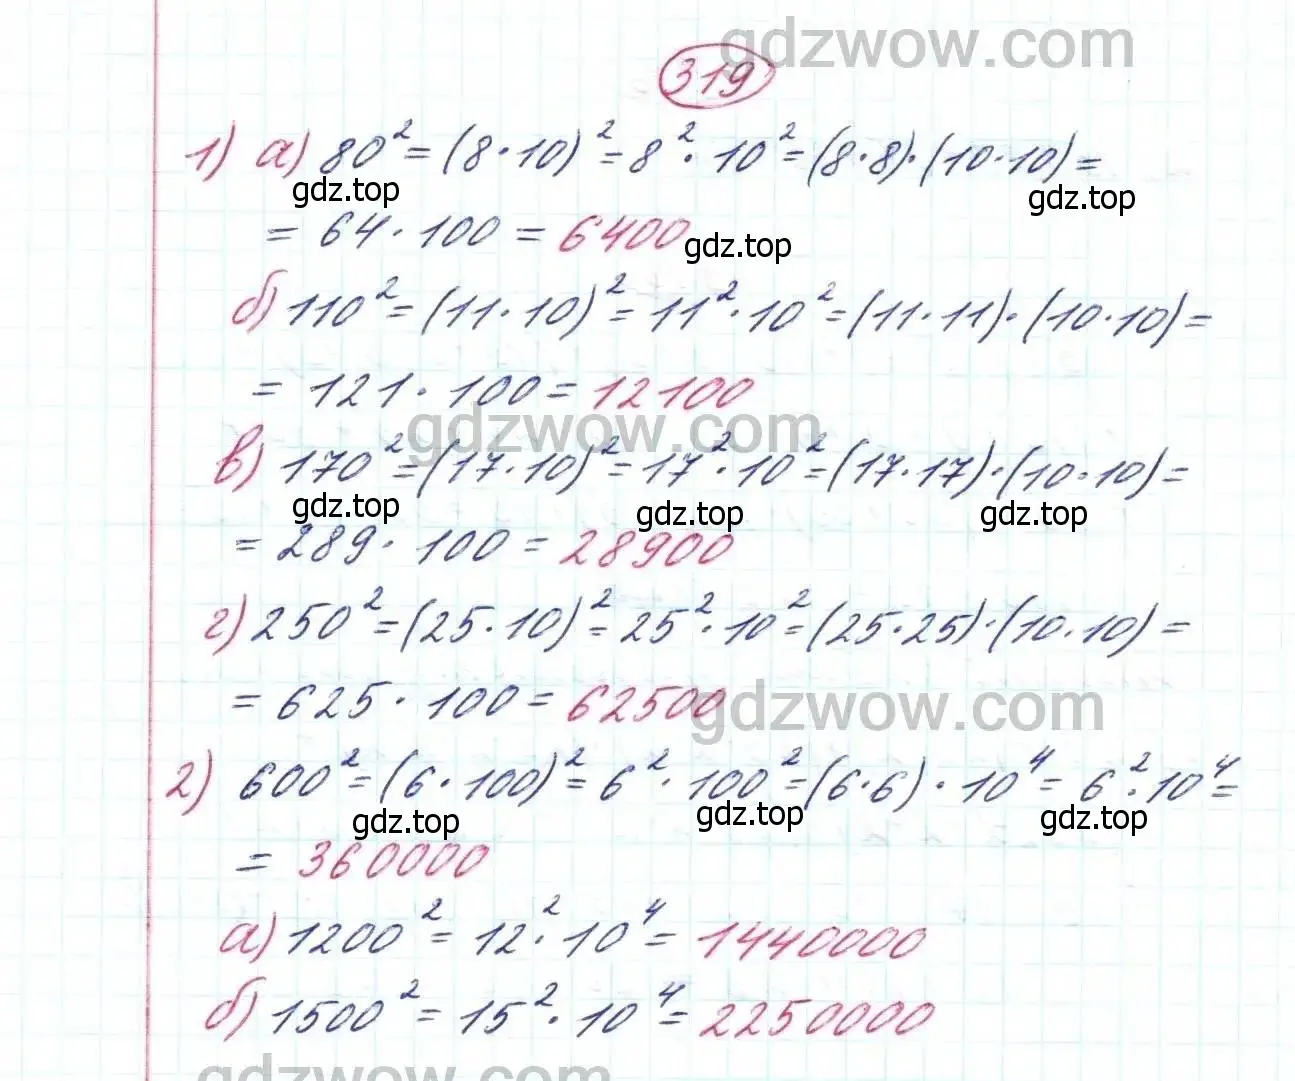 gdzwow.com
319
1) а) 80² = (8·10)² = 8²·10² = (8·8)·(10·10) =
gdz.top gdz.top
= 64·100 = 6400
gdz.top
б) 110² = (11·10)² = 11²·10² = (11·11)·(10·10) =
= 121·100 = 12100
gdzwow.com
в) 170² = (17·10)² = 17²·10² = (17·17)·(10·10) =
gdz.top gdz.top gdz.top
= 289·100 = 28900
г) 250² = (25·10)² = 25²·10² = (25·25)·(10·10) =
= 625·100 = 62500
gdzwow.com
2) 600² = (6·100)² = 6²·100² = (6·6)·10⁴ = 6²·10⁴ =
gdz.top gdz.top gdz.top
= 360000
а) 1200² = 12²·10⁴ = 1440000
gdzwow.com
б) 1500² = 15²·10⁴ = 2250000
gdzwow.com